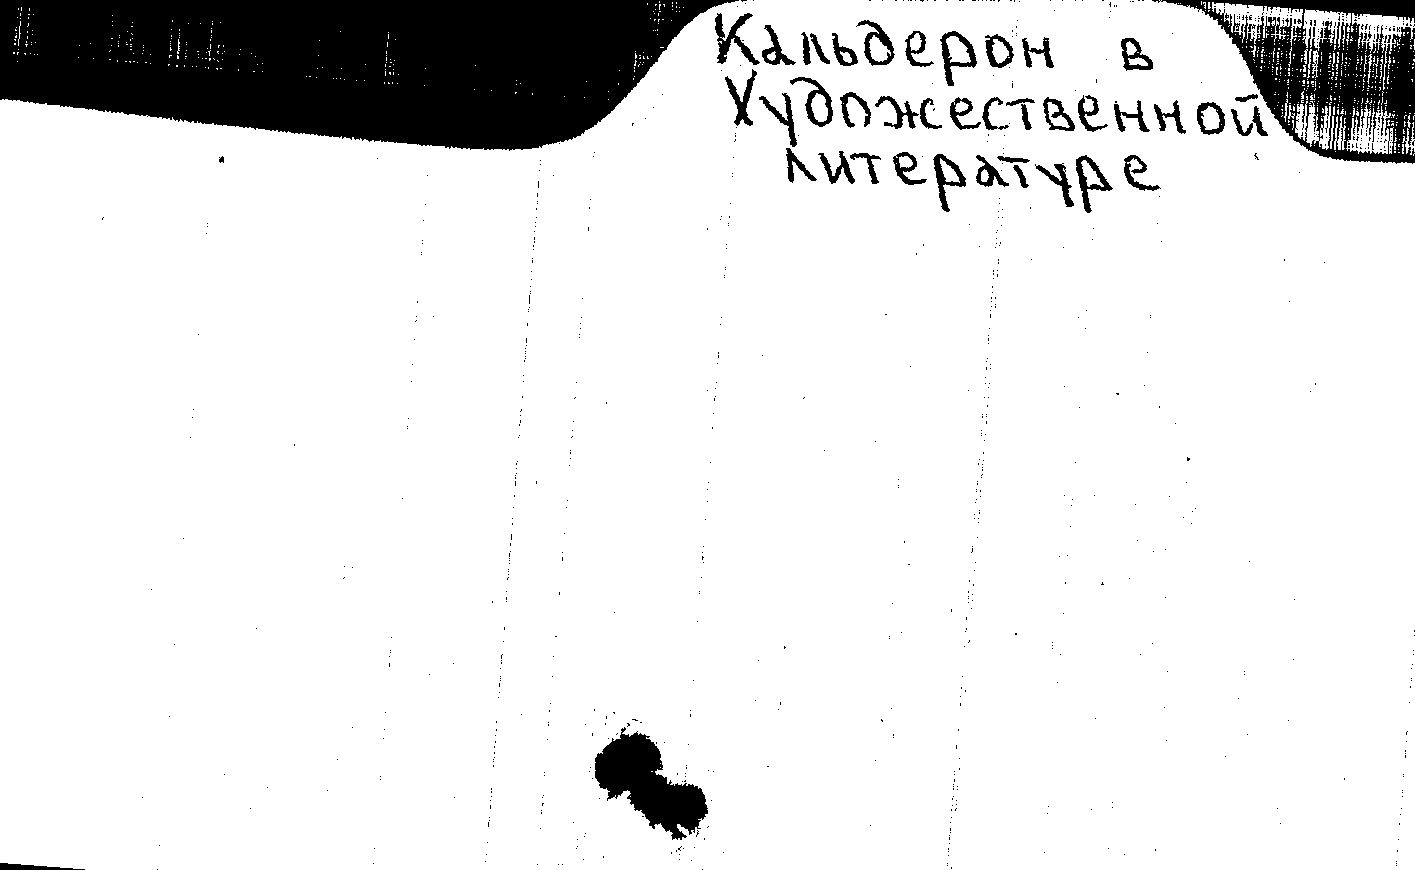 Кальдерон в
Художественной
литературе